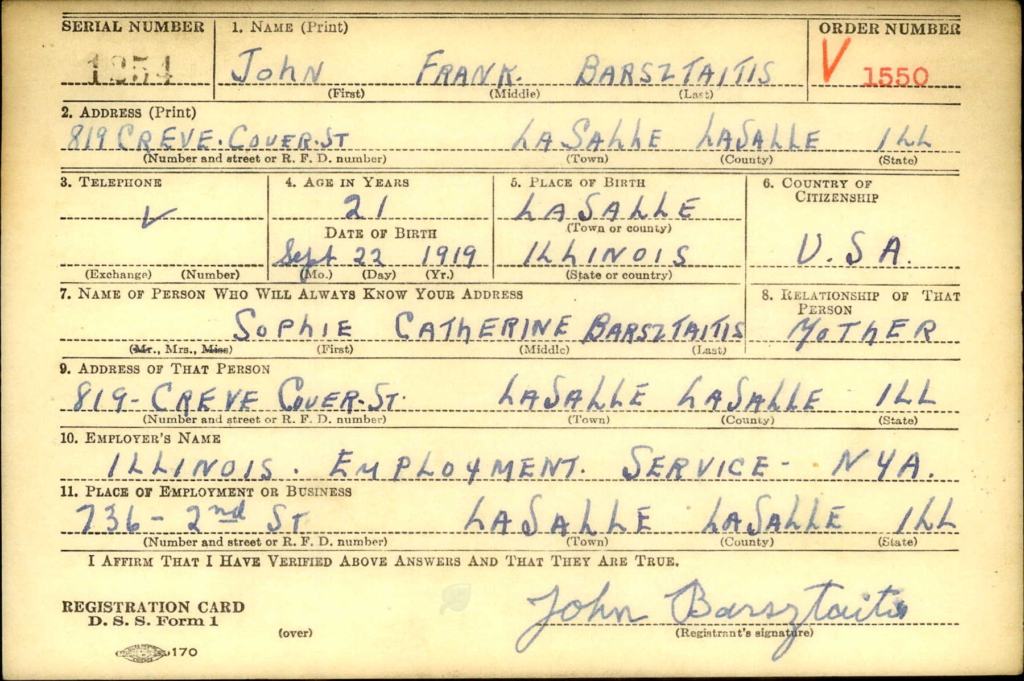 SERIAL NUMBER 1. NAME (Print) ORDER NUMBER
1254 JOHN FRANK. BARSZTAITIS V 1550
(First) (Middle) (Last)
2. ADDRESS (Print)
819 CREVE. COUER. ST LASALLE LASALLE ILL
(Number and street or R. F. D. number) (Town) (County) (State)
3. TELEPHONE 4. AGE IN YEARS 5. PLACE OF BIRTH 6. COUNTRY OF
CITIZENSHIP
21 LASALLE
(Town or county)
DATE OF BIRTH
Sept 22 1919 ILLINOIS U.S A.
(Exchange) (Number) (Mo.) (Day) (Yr.) (State or country)
7. NAME OF PERSON WHO WILL ALWAYS KNOW YOUR ADDRESS 8. RELATIONSHIP OF THAT
PERSON
SOPHIE CATHERINE BARSZTAITIS MOTHER
(Mr., Mrs., Miss) (First) (Middle) (Last)
9. ADDRESS OF THAT PERSON
819- CREVE COUER-ST. LASALLE LASALLE ILL
(Number and street or R. F. D. number) (Town) (County) (State)
10. EMPLOYER'S NAME
ILLINOIS. EMPLOYMENT. SERVICE- NYA.
11. PLACE OF EMPLOYMENT OR BUSINESS
736- 2nd ST LASALLE LASALLE ILL
(Number and street or R. F. D. number) (Town) (County) (State)
I AFFIRM THAT I HAVE VERIFIED ABOVE ANSWERS AND THAT THEY ARE TRUE.
REGISTRATION CARD
D. S. S. Form 1 John Barsztaitis
(over) (Registrant's signature)
170